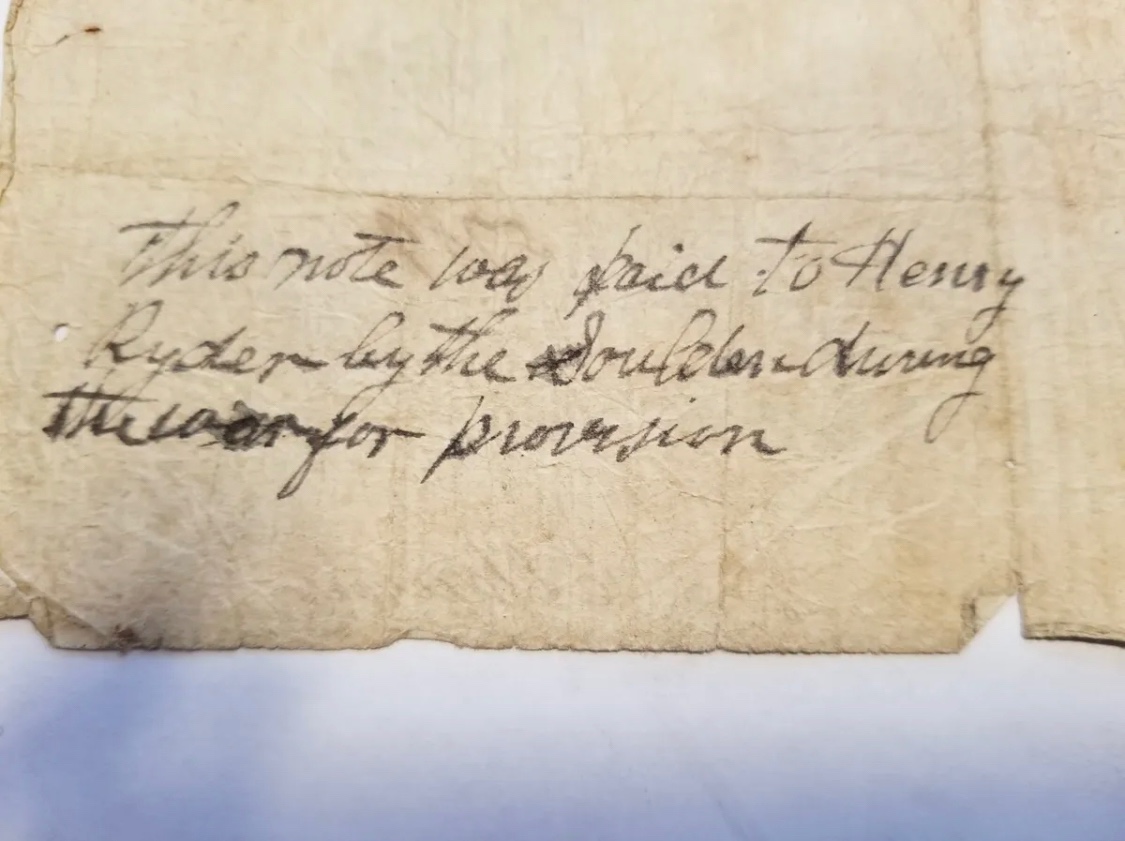 This note was paid to Henry
Ryder by the Soulders during
the war for provision